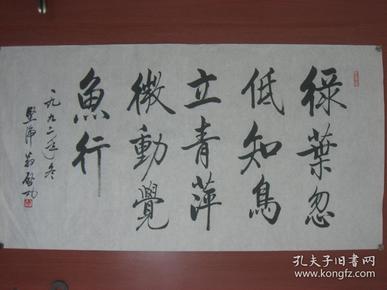 绿葉忽
低知鳥
立青萍
微動覺
魚行
一九九二年冬
孔夫子旧书网
www.kongfz.com